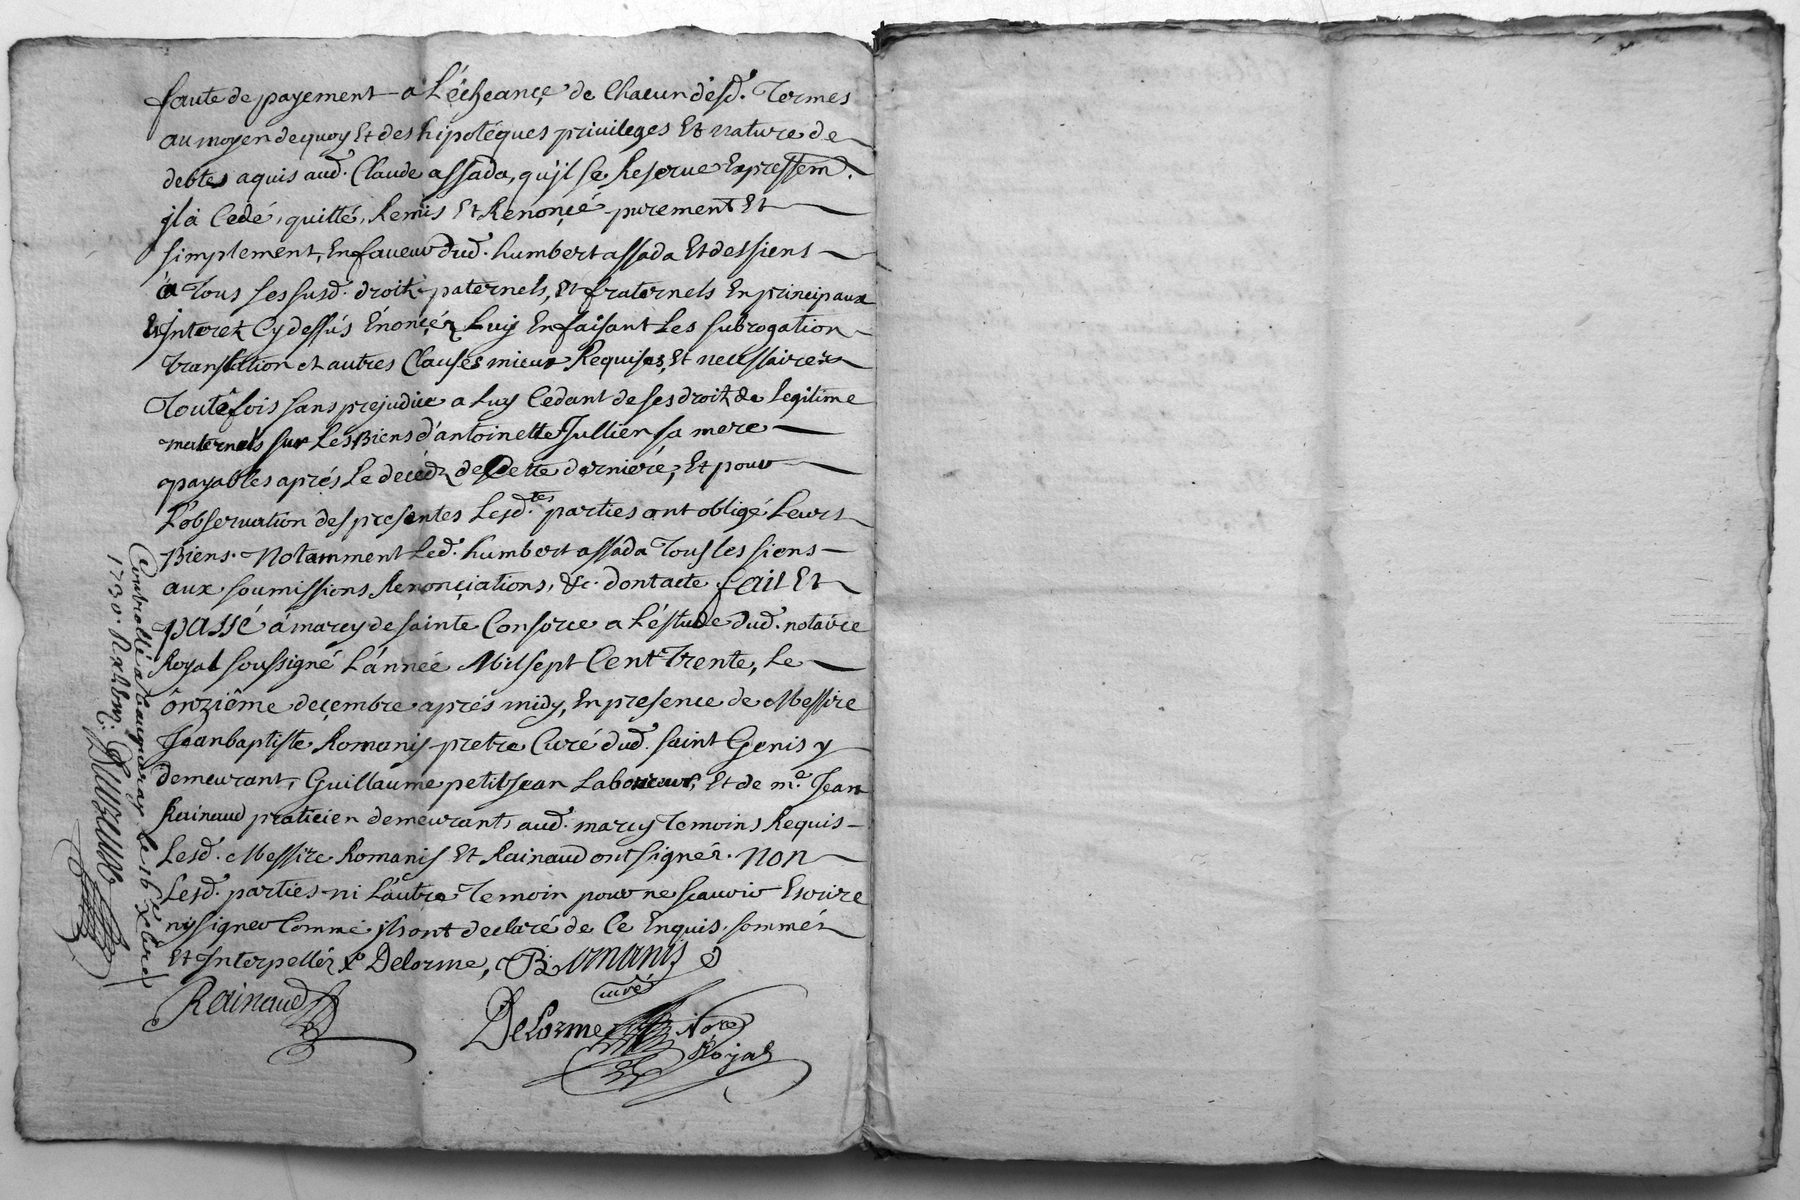 faute de payement a L'écheance de Chacun desd. Termes
au moyen de quoy Et des hipotéques privileges Et nature de
debtes aquis aud. Claude assada, qu'jl se Reserve Expressem.
jl a Cedé, quitté, Remis Et Renonçé purement Et
simplement, En faveur dud. humbert assada Et des siens
Tous ses susd. droitz paternels, Et fraternels En principaux
Et Jnteretz Cy dessus Énonçéz Luy En faisant Les subrogation
translation et autres Clauses mieux Requises, Et necessaires
Toutêfois sans prejudice a Luy Cedant de ses droitz de Legitime
maternels sur Les Biens d'antoinette Jullien sa mere
payables aprés Le decédz de Cette derniere, Et pour
L'observation des presentes Lesd.tes parties ont obligé Leurs
Biens. Notamment Led. humbert assada Tous les siens
aux soumissions Renonçiations, &c. dont acte fait Et
passé á marcy de sainte Consorce a L'éstude dud. notaire
Royal soussigné L'année Mil sept Cent Trente, Le
ônziême deçembre aprés midy, En presence de Messire
Jean baptiste Romanis pretre Curé dud. saint Genis y
demeurant, Guillaume petitjean Laboureur, Et de me. Jean
Rainaud praticien demeurants aud. marcy Temoins Requis
Lesd. Messire Romanis Et Rainaud ont signéz. Non
Lesd. parties ni L'autre Temoin pour ne sçauoir Escrire
ny signer Comme jls ont declaré de Ce Enquis. sommés
Et Jnterpelléz Delorme, Romanis
curé
Rainaud
Delorme Nore
Royal
Controllé a Vaugneray Le 16e Xbre
1730. R